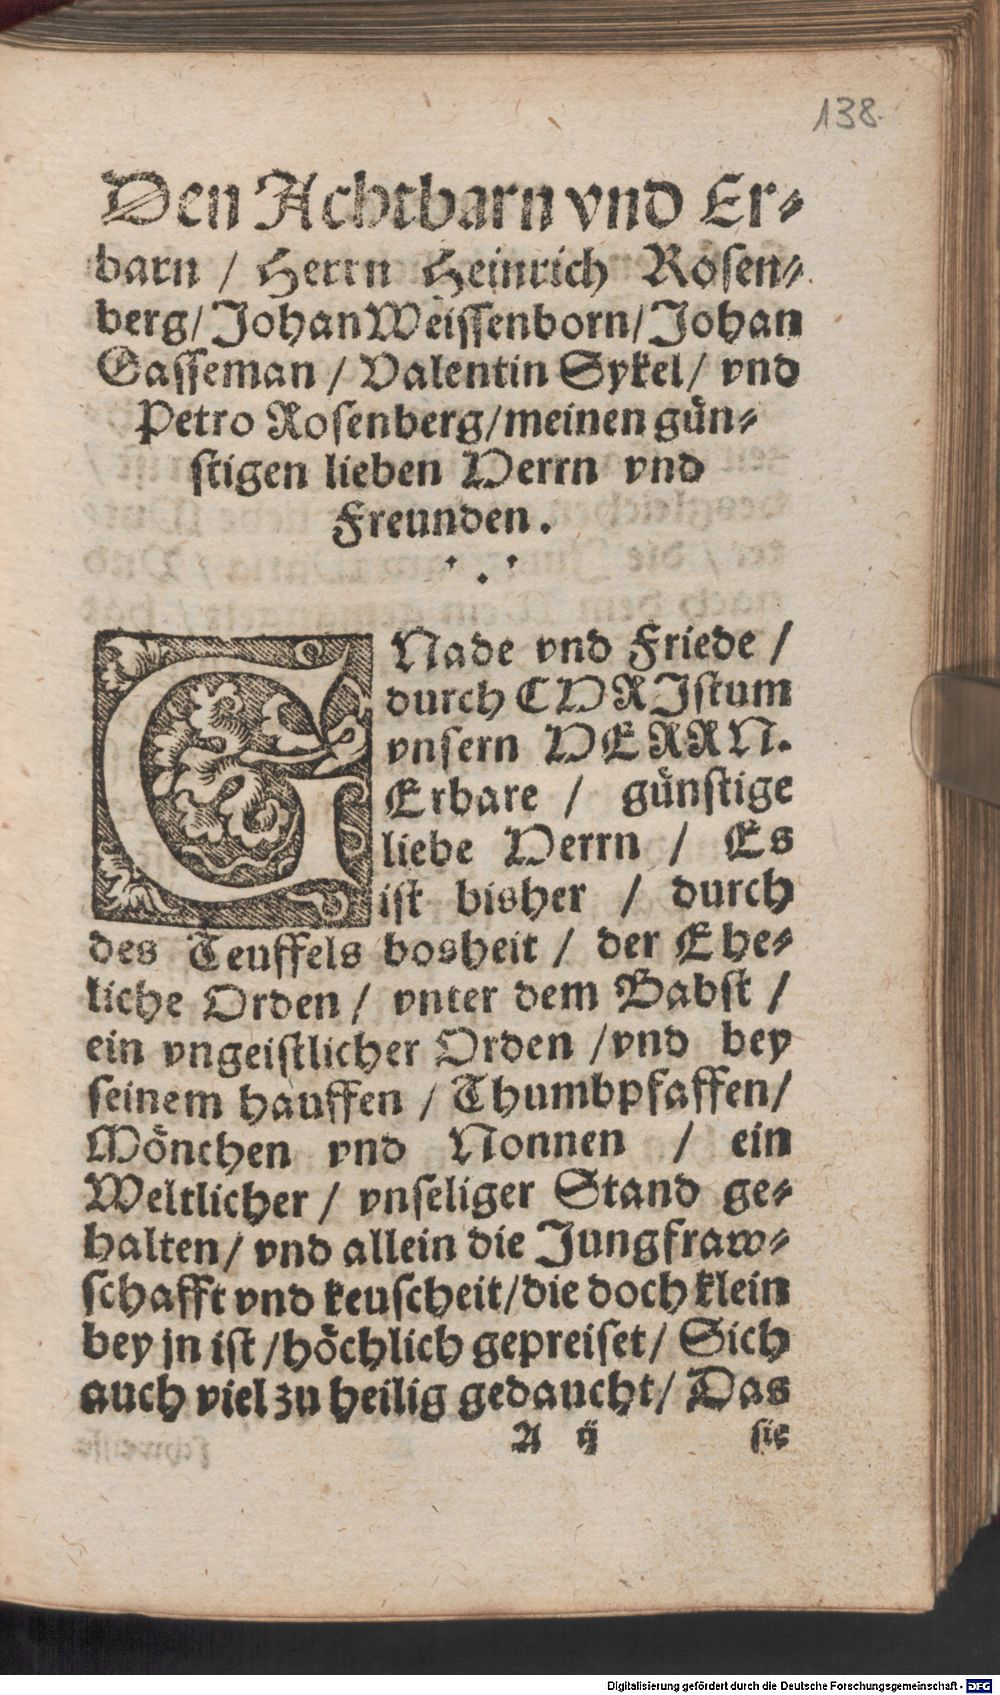 138.
Den Achtbarn vnd Er-
barn / Herrn Heinrich Rosen-
berg / Johan Weissenborn / Johan
Gasseman / Valentin Sykel / vnd
Petro Rosenberg / meinen gün-
stigen lieben Herrn vnd
Freunden.
GNade vnd Friede /
durch CHRIstum
vnsern HERRN.
Erbare / günstige
liebe Herrn / Es
ist bisher / durch
des Teuffels bosheit / der Ehe-
liche Orden / vnter dem Babst /
ein vngeistlicher Orden / vnd bey
seinem hauffen / Thumbpfaffen /
Mönchen vnd Nonnen / ein
Weltlicher / vnseliger Stand ge-
halten / vnd allein die Jungfraw-
schafft vnd keuscheit / die doch klein
bey jn ist / höchlich gepreiset / Sich
auch viel zu heilig gedaucht / Das
A ij sie
Digitalisierung gefördert durch die Deutsche Forschungsgemeinschaft - DFG